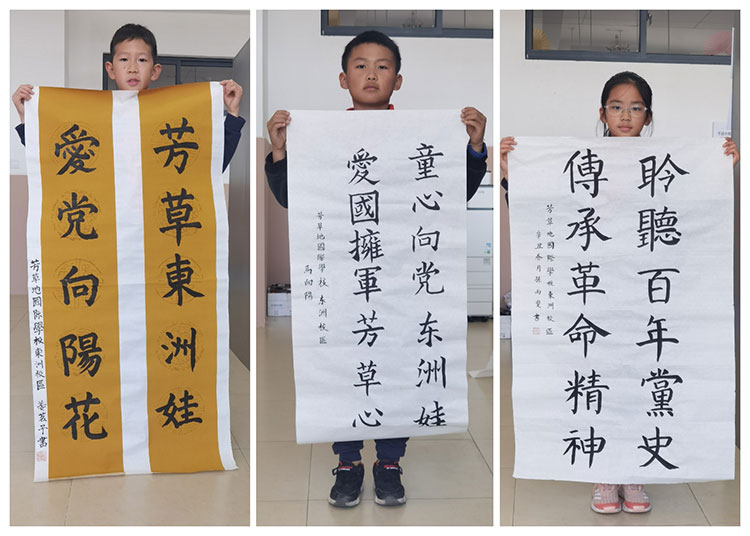 芳草東洲娃
愛党向陽花
芳草地国际學校東洲校區 書
童心向党东洲娃
愛國擁軍芳草心
芳草地國際學校东洲校區
聆聽百年黨史
傳承革命精神
芳草地國際學校東洲校區
辛丑冬月 書